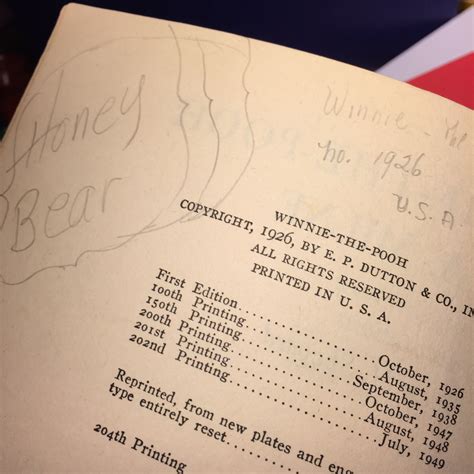 Honey
Bear
Winnie - the
no. 1926
U.S.A.
WINNIE-THE-POOH
COPYRIGHT, 1926, BY E. P. DUTTON & CO., IN
ALL RIGHTS RESERVED
PRINTED IN U. S. A.
First Edition....................October, 1926
100th Printing....................August, 1935
150th Printing....................September, 1938
200th Printing....................October, 1947
201st Printing....................August, 1948
202nd Printing....................July, 1949
Reprinted, from new plates and eng
type entirely reset....................
204th Printing